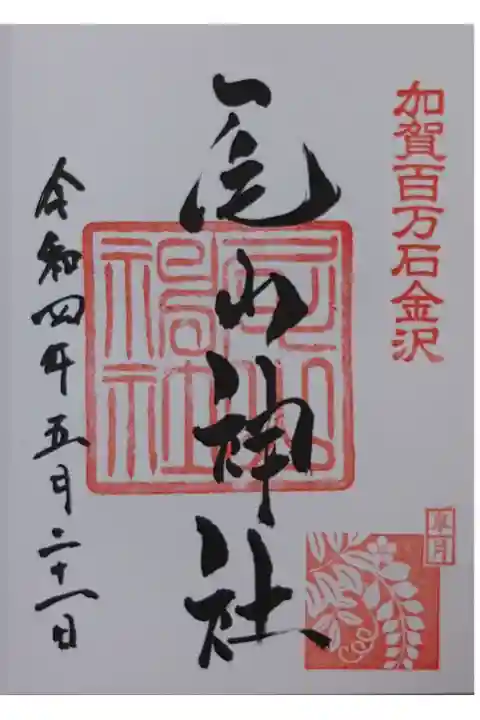 加賀百万石金沢
尾山神社
令和四年五月二十一日
皐月